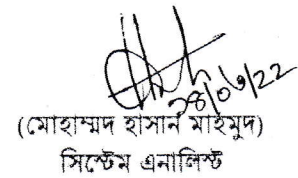 ২৪/০৬/২২
(মোহাম্মদ হাসান মাহমুদ)
সিস্টেম এনালিস্ট